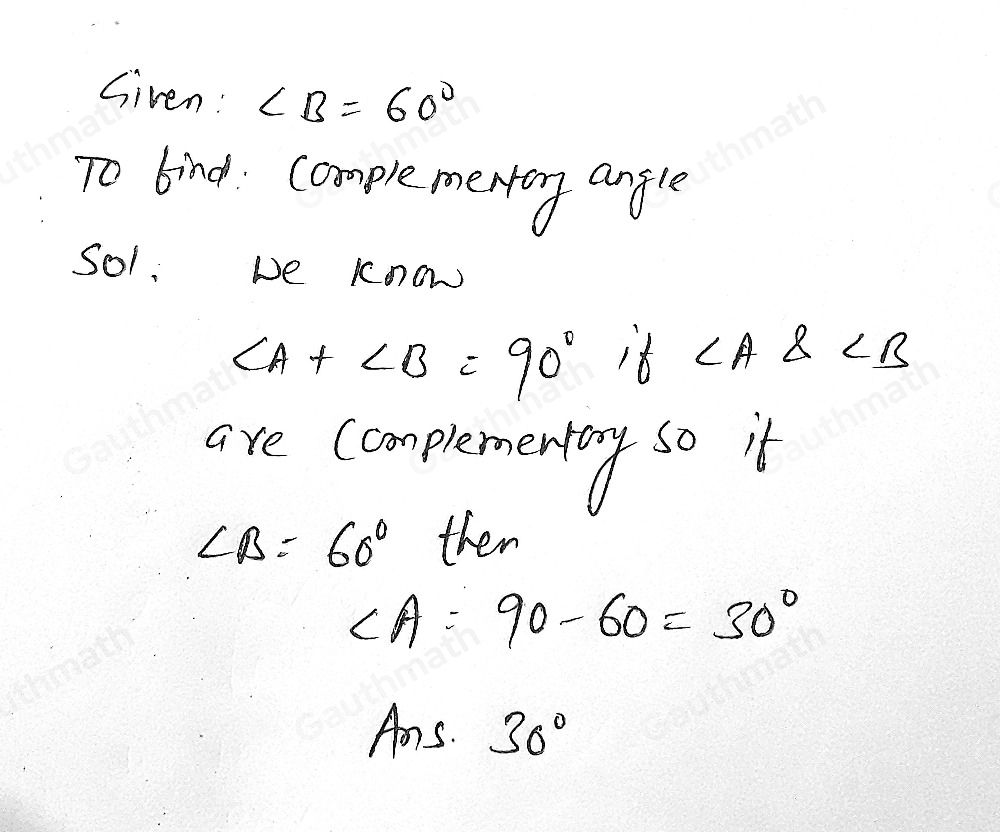 Given: ∠B = 60°
To find: Complementary angle
Sol. We know
∠A + ∠B = 90° if ∠A & ∠B
are Complementary so if
∠B = 60° then
∠A = 90 - 60 = 30°
Ans. 30°
Gauthmath